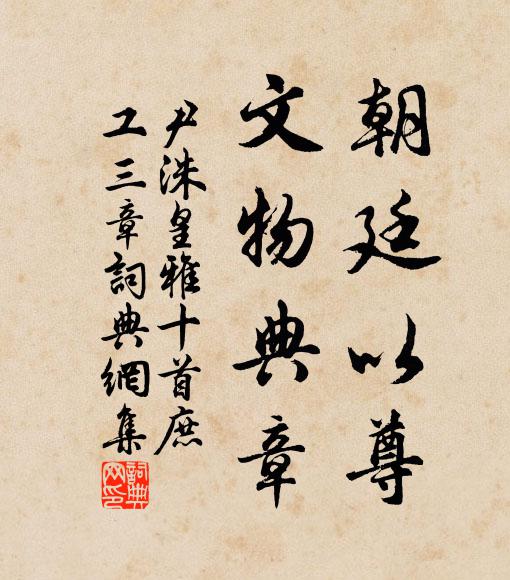 朝廷以尊
文物典章
尹洙皇雅十首庶
工三章詞典網集
詞典網印